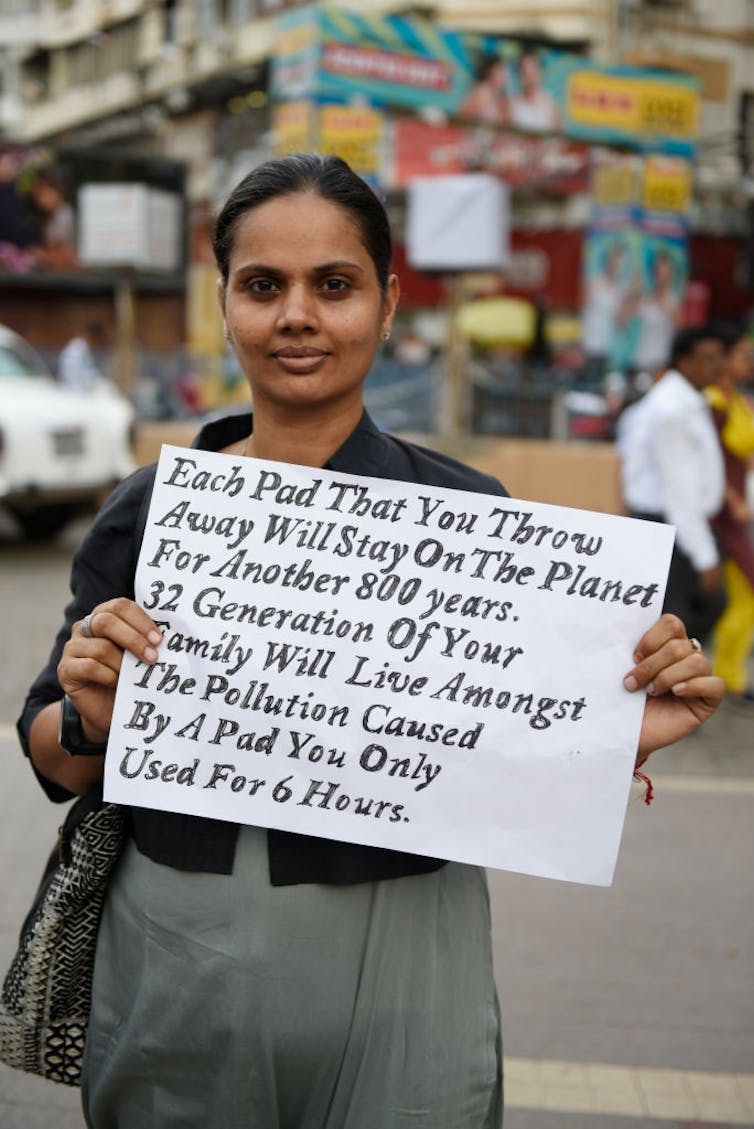 Each Pad That You Throw
Away Will Stay On The Planet
For Another 800 years.
32 Generation Of Your
Family Will Live Amongst
The Pollution Caused
By A Pad You Only
Used For 6 Hours.